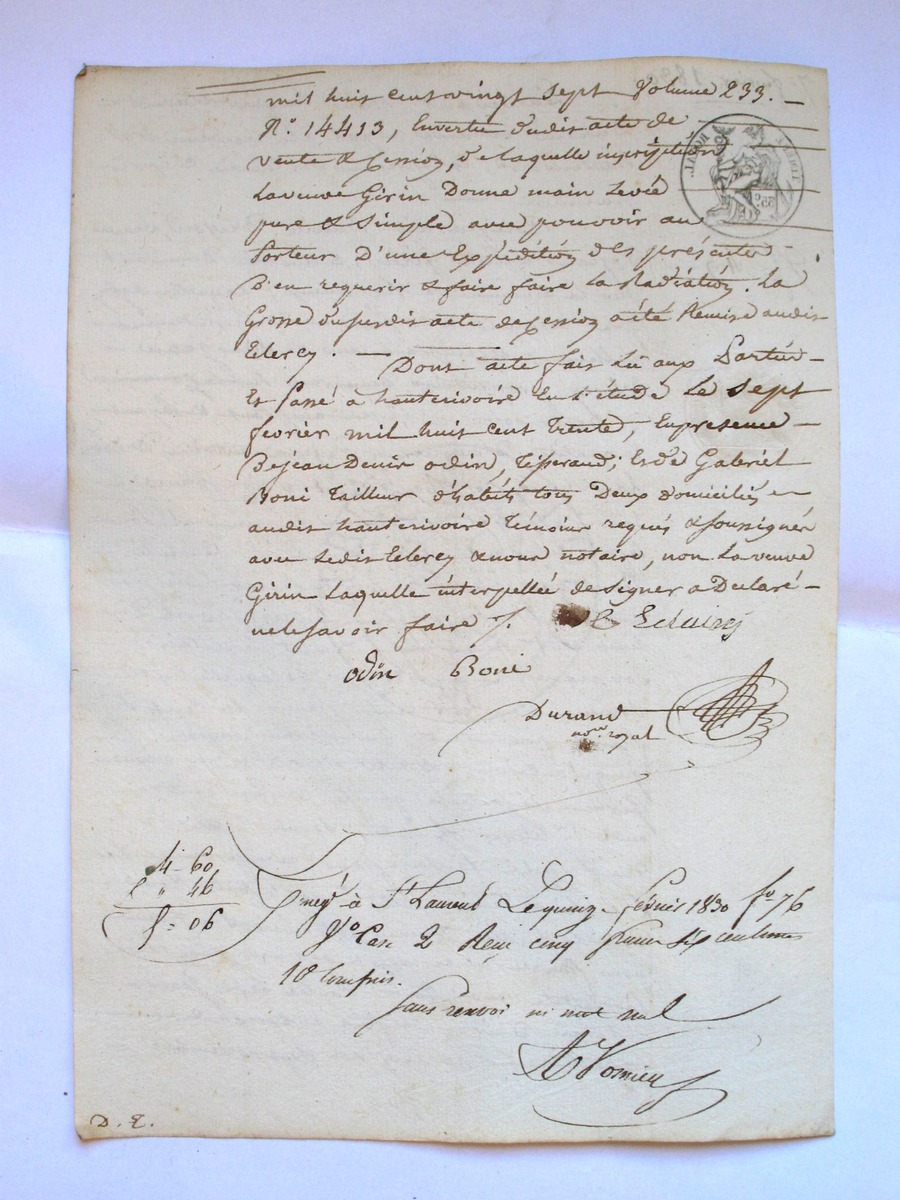 mil huit cent vingt sept Volume 233. —
N.° 14413, En vertu dudit acte de
vente & Cession, de laquelle inscription
La veuve Girin Donne main Levée
pure & Simple avec pouvoir au
Porteur D'une Expédition des présentes
D'en requerir & faire faire La Radiation. La
Grosse dususdit acte de Cession a été Remise audit
Eclercy. — Dont acte fait Lu aux Parties —
Et Passé à hauterivoire En L'étude Le sept
fevrier mil huit cent Trente, En presence —
De jean Denis odin, Tisserand; Et de Gabriel
Boni Tailleur d'habits tous Deux domiciliés —
audit hauterivoire Témoins requis & soussignés
avec Ledit Eclercy & nous notaire, non La veuve
Girin Laquelle interpellée de signer a Déclaré —
ne le savoir faire /.
odin Boni
Durand
no.re royal
4 - 60
" 46
5 = 06
Enreg.é à S.t Laurent Le quinze fevrier 1830 f.o 76
V.o Case 2 Reçu cinq francs six centimes
10.e Compris.
Sans renvoi ni mot nul
D. E.